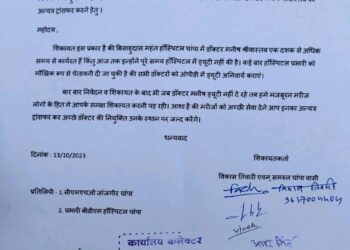 अन्यत्र ट्रांसफर करने हेतु ।
महोदय,
शिकायत इस प्रकार है की बिसाहुदास महंत हॉस्पिटल चांपा में डॉक्टर मनीष श्रीवास्तव एक दशक से अधिक
समय से कार्यरत हैं किंतु आज तक इन्होंने पूरे समय हॉस्पिटल में ड्यूटी नहीं की है। कई बार हॉस्पिटल प्रभारी को
मौखिक रूप से चेतावनी दी जा चुकी है की सभी डॉक्टरों को ओपीडी में ड्यूटी अनिवार्य कराएं।
बार बार निवेदन व शिकायत के बाद भी जब डॉक्टर मनीष ड्यूटी नहीं दे रहे तब हमे मजबूरन मरीज
लोगों के हित मे आपके समक्ष शिकायत करनी पड़ रही। आशा है की मरीजों को अच्छी सेवा देने आप इनका अन्यत्र
ट्रांसफर कर अच्छे डॉक्टर की नियुक्ति उनके स्थान पर जल्द करेंगे।
धन्यवाद
दिनांक : 13/10/2023
शिकायतकर्ता
विकास तिवारी एवम् समस्त चांपा वासी
प्रतिलिपी - 1. सीएमएचओ जांजगीर चांपा
विकास तिवारी
2. प्रभारी बीडीएम हॉस्पिटल चांपा
Vivek
कार्यालय कलेक्टर